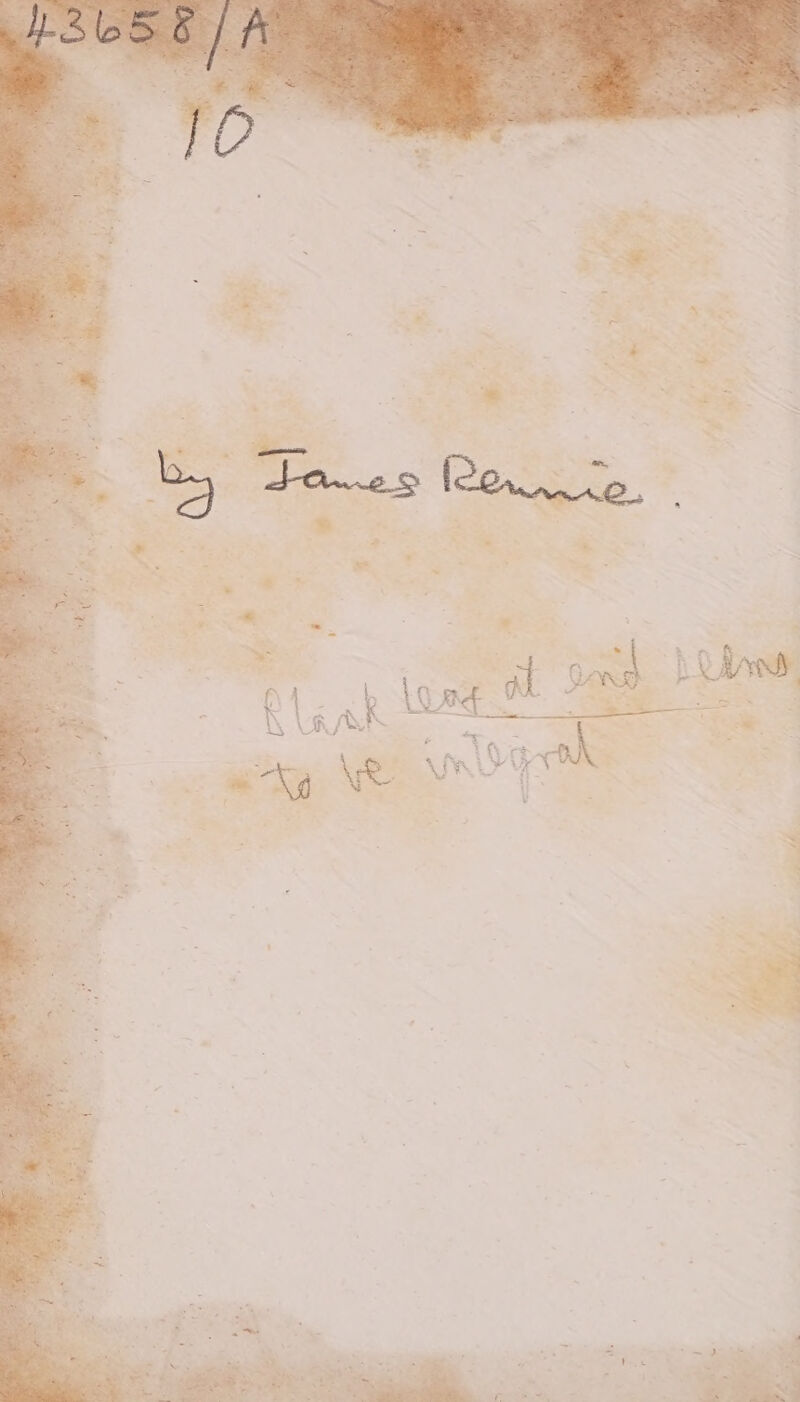 43658/A
10
by James Rennie.
Blank leaf at end seems
to be integral